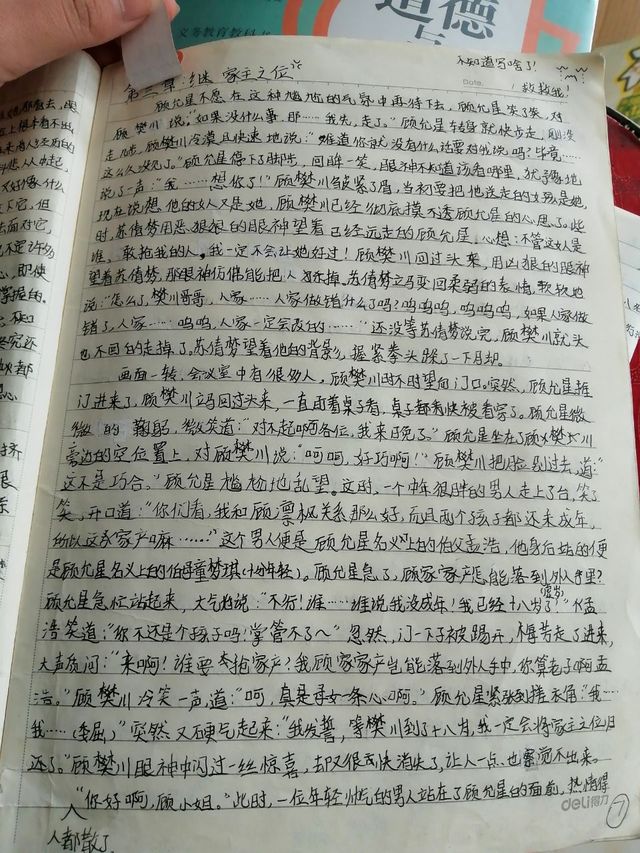 道德
义务教育教科书
不知道写啥了!
救救我!
Date.
第三章:继 家主之位
顾允星不愿在这种尴尬的气氛中再待下去,顾允星笑了笑,对
顾樊川说:"如果没什么事,那……我先,走了。"顾允星转身就快步走,刚没
走几步,顾樊川冷漠且快速地说:"难道你就没有什么话要对我说吗?毕竟……
这么久没见了。"顾允星停下了脚步,回眸一笑,眼神不知道该看哪里,犹豫地
说了一声:"我……想你了!"顾樊川皱紧了眉,当初要把他送走的女孩是她,
现在说想他的女人又是她,顾樊川已经彻底摸不透顾允星的心思了。此
时,苏倩梦用恶狠狠的眼神望着已经远走的顾允星,心想:不管这女人是
谁,敢抢我的人,我一定不会让她好过!顾樊川回过头来,用凶狠的眼神
望着苏倩梦,那眼神仿佛能把人吃掉。苏倩梦立马变回柔弱的表情,软软地
说:"怎么了,樊川哥哥,人家……人家做错什么了吗?呜呜呜,呜呜呜,如果人家做
错了,人家……呜呜,人家一定会改的……"还没等苏倩梦说完,顾樊川就头
也不回的走掉了。苏倩梦望着他的背影,握紧拳头跺了一下脚。
画面一转,会议室中有很多人,顾樊川时不时望向门口。突然,顾允星推
门进来了,顾樊川立马回过头来,一直盯着桌子看,桌子都看快被看穿了。顾允星微
微的鞠躬,微笑道:"对不起啊各位,我来晚了。"顾允星坐在了顾樊川
旁边的空位置上,对顾樊川说:"呵呵,好巧啊!"顾樊川把脸别过去,道:
"这不是巧合。"顾允星尴尬地乱望。这时,一个中年很胖的男人走上了台,笑了
笑,开口道:"你们看,我和顾凛枫关系那么好,而且两个孩子都还未成年,
所以这家产嘛……"这个男人便是顾允星名义上的伯父孟浩,他身后站的便
是顾允星名义上的伯母童梦琪(十分年轻)。顾允星急了,顾家家产怎能落到外人手里?
顾允星急忙站起来,大气地说:"不行!谁……谁说我没成年!我已经十八岁了!"(虚岁)孟
浩笑道:"你不还是个孩子吗?掌管不了~"忽然,门一下子被踢开,走了进来,
大声质问:"来啊!谁要抢家产?我顾家家产岂能落到外人手中,你算老子啊孟
浩。"顾樊川冷笑一声,道:"呵,真是母女一条心啊。"顾允星紧张到搓衣角:"我……
我……(委屈)"突然又硬气起来:"我发誓,等樊川到了十八岁,我一定会将家主之位归
还了。"顾樊川眼神中闪过一丝惊喜,却又很快消失了,让人一点也察觉不出来。
"你好啊,顾小姐。"此时,一位年轻帅气的男人站在了顾允星的面前,热情得
人都散了
deli得力
7